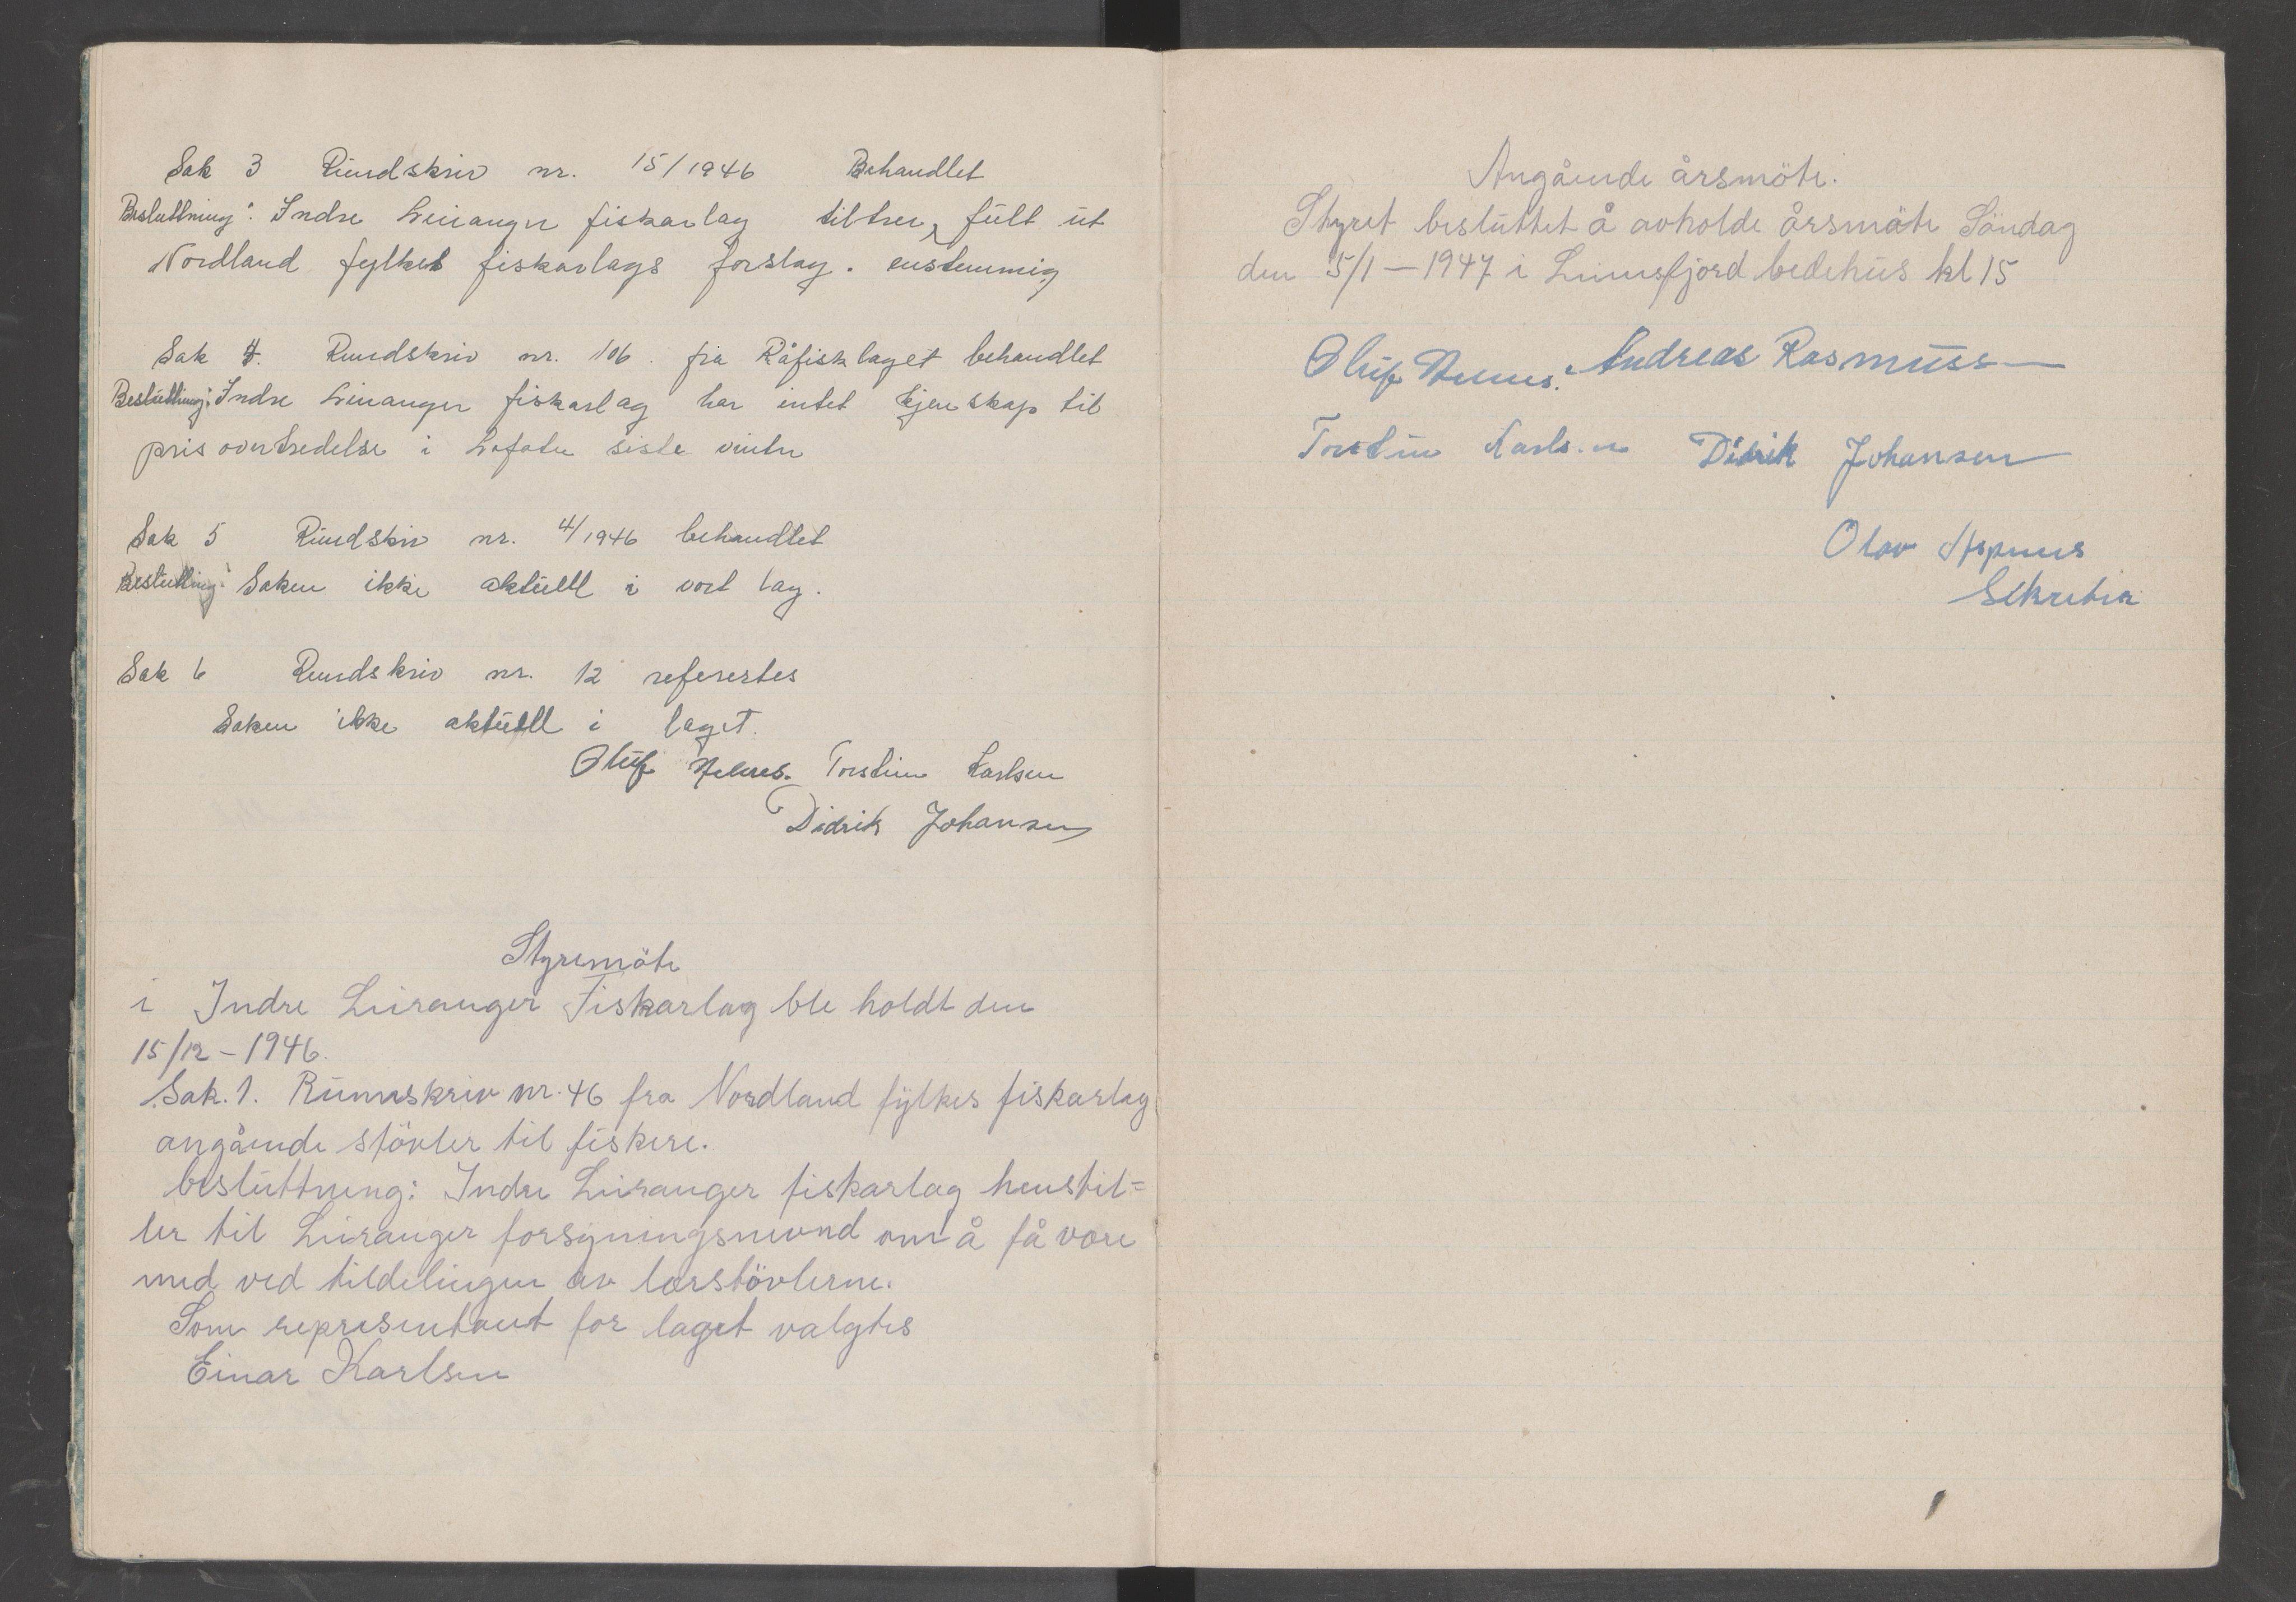 Sak 3 Rundskriv nr. 15/1946 Behandlet
Beslutning: Indre Leiranger fiskarlag tiltrer fult ut
Nordland fylkes fiskarlags forslag. enstemmig
Sak 4. Rundskriv nr. 106. fra Råfisklaget behandlet
Beslutting: Indre Leiranger fiskarlag har intet kjenskap til
pris overtredelse i Lofoten siste vinter
Sak 5 Rundskriv nr. 4/1946 behandlet
Beslutting: Saken ikke aktuell i vort lag.
Sak 6 Rundskriv nr. 12 referertes
Saken ikke aktuell i laget.
Oluf Torstein Karlsen
Didrik Johansen
Styremöte
i Indre Leiranger Fiskarlag ble holdt den
15/12-1946.
Sak. 1. Runnskriv nr. 46 fra Nordland fylkes fiskarlag
angående stövler til fiskere.
besluttning: Indre Leiranger fiskarlag henstil=
ler til Leiranger forsyningsnevnd om å få være
med ved tildelingen av lærstövlerne.
Som representant for laget valgtes
Einar Karlsen
Angående årsmöte.
Styret besluttet å avholde årsmöte Söndag
den 5/1-1947 i Leinesfjord bedehus kl 15
Oluf Andreas Rasmuss
Torstein Karlsen Didrik Johansen
Olav
Sekretær